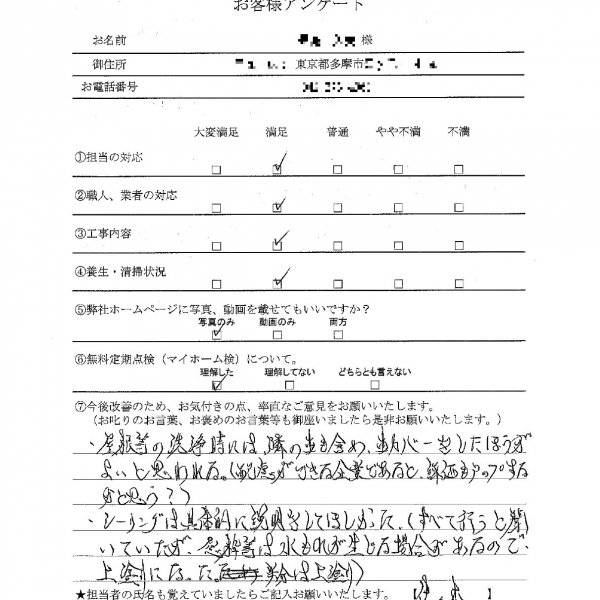 お客様アンケート
お名前 様
御住所 東京都多摩市
お電話番号
大変満足 満足 普通 やや不満 不満
①担当の対応
②職人、業者の対応
③工事内容
④養生・清掃状況
⑤弊社ホームページに写真、動画を載せてもいいですか？
写真のみ 動画のみ 両方
⑥無料定期点検（マイホーム検）について。
理解した 理解してない どちらとも言えない
⑦今後改善のため、お気付きの点、率直なご意見をお願いいたします。
（お叱りのお言葉、お褒めのお言葉等も御座いましたら是非お願いいたします。）
・屋根等の洗浄時には、隣の車も含め、車カバーをしたほうが
よいと思われる。（配慮ができる企業であると、評価もアップする
かと思う？）
・シーリングは具体的に説明をしてほしかった。（すべて打うと聞
いていたが、窓枠等は水もれが生じる場合があるので、
上塗りになった。は上塗り）
★担当者の氏名も覚えていましたらご記入お願いいたします。